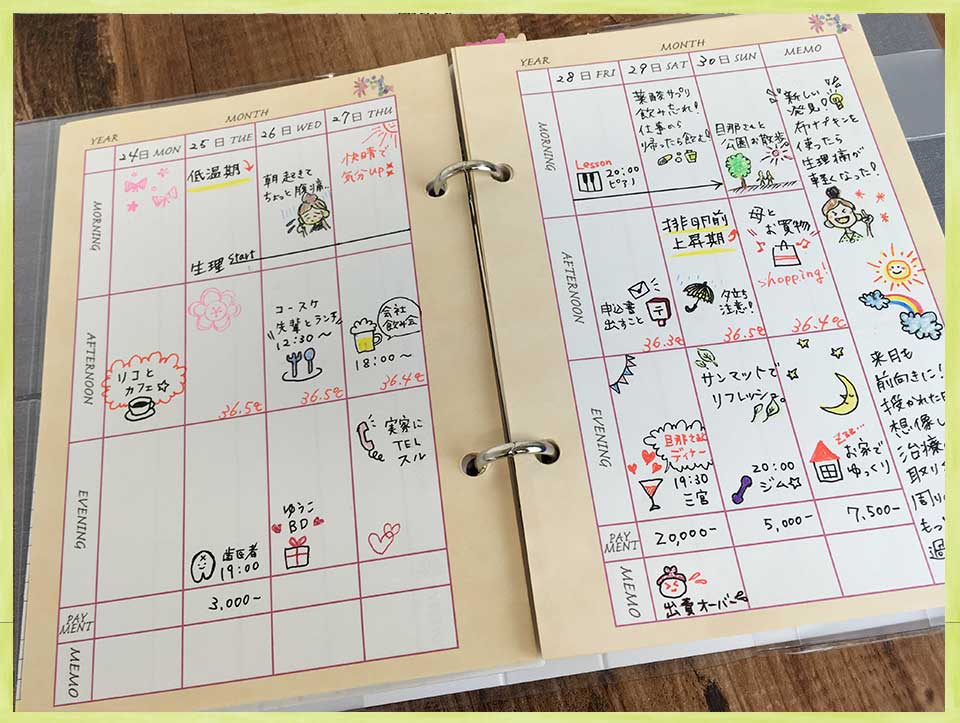 YEAR
MONTH
24日 MON
25日 TUE
26日 WED
27日 THU
MORNING
低温期
朝起きて
ちょっと腹痛…
快晴で
気分UP
生理 Start
AFTERNOON
リコと
カフェ☆
36.5℃
コースケ
先輩とランチ
12:30〜
36.5℃
会社
飲み会
18:00〜
36.4℃
EVENING
歯医者
19:00
ゆうこ
BD
実家に
TEL
スル
PAY
MENT
3,000-
MEMO
YEAR
MONTH
28日 FRI
29日 SAT
30日 SUN
MEMO
MORNING
Lesson
20:00
ピアノ
葉酸サプリ
飲み忘れ!
仕事から
帰ったら飲む!
旦那さんと
公園お散歩
新しい
発見!
布ナプキンを
使ったら
生理痛が
軽くなった!
AFTERNOON
申込書
出すこと
〒
36.3℃
排卵前
上昇期
夕立ち
注意!
36.5℃
母と
お買物
shopping!
36.4℃
EVENING
旦那さまと
ディナー
19:30
三宮
サンマットで
リフレッシュ。
20:00
ジム☆
zzz...
お家で
ゆっくり
来月も
前向きに!
授かれた
想像し
治療
取り
周り
もっ
過
PAY
MENT
20,000-
5,000-
7,500-
MEMO
出費オーバー